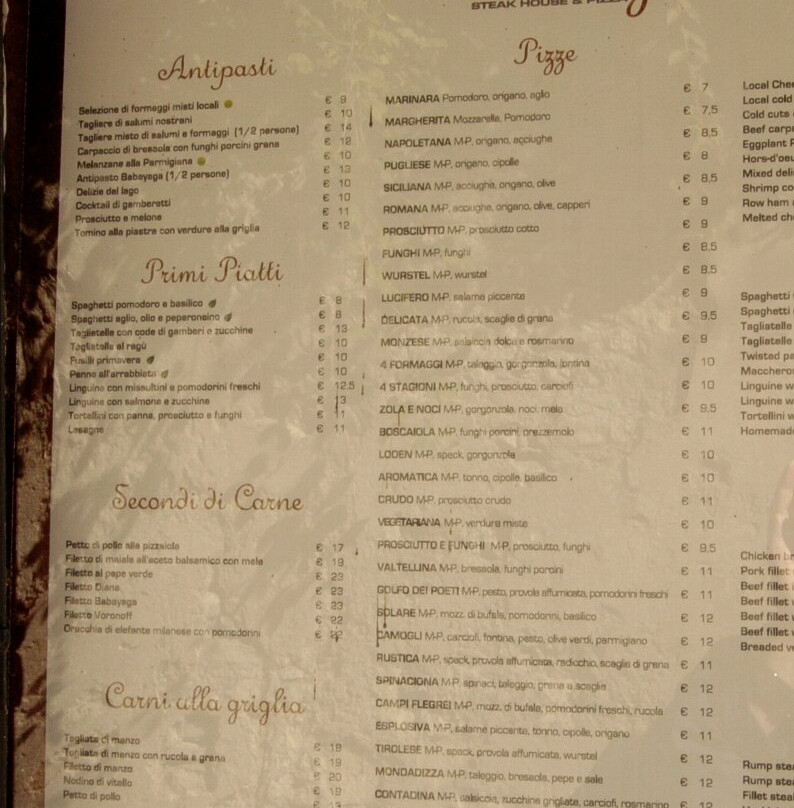 STEAK HOUSE & PIZZ
Antipasti
Selezione di formaggi misti locali € 9
Tagliere di salumi nostrani € 10
Tagliere misto di salumi e formaggi (1/2 persone) € 14
Carpaccio di bresaola con funghi porcini grana € 12
Melanzane alla Parmigiana € 10
Antipasto Babayaga (1/2 persone) € 13
Delizie del lago € 10
Cocktail di gamberetti € 10
Prosciutto e melone € 11
Tomino alla piastra con verdure alla griglia € 12
Primi Piatti
Spaghetti pomodoro e basilico € 8
Spaghetti aglio, olio e peperoncino € 8
Tagliatelle con code di gamberi e zucchine € 13
Tagliatelle al ragù € 10
Fusilli primavera € 10
Penne all'arrabbiata € 10
Linguine con missultini e pomodorini freschi € 12.5
Linguine con salmone e zucchine € 13
Tortellini con panna, prosciutto e funghi € 11
Lasagne € 11
Secondi di Carne
Petto di pollo alla pizzaiola € 17
Filetto di maiale all'aceto balsamico con mela € 19
Filetto al pepe verde € 23
Filetto Diana € 23
Filetto Babayaga € 23
Filetto Voronoff € 22
Orecchia di elefante milanese con pomodorini € 22
Carni alla griglia
Tagliata di manzo € 19
Tagliata di manzo con rucola e grana € 19
Filetto di manzo € 20
Nodino di vitello € 19
Petto di pollo €
Pizze
MARINARA Pomodoro, origano, aglio € 7
MARGHERITA Mozzarella, Pomodoro € 7,5
NAPOLETANA M-P, origano, acciughe € 8,5
PUGLIESE M-P, origano, cipolle € 8
SICILIANA M-P, acciughe, origano, olive € 8,5
ROMANA M-P, acciughe, origano, olive, capperi € 9
PROSCIUTTO M-P, prosciutto cotto € 9
FUNGHI M-P, funghi € 8,5
WURSTEL M-P, wurstel € 8,5
LUCIFERO M-P, salame piccante € 9
DELICATA M-P, rucola, scaglie di grana € 9,5
MONZESE M-P, salsiccia dolce e rosmarino € 9
4 FORMAGGI M-P, taleggio, gorgonzola, fontina € 10
4 STAGIONI M-P, funghi, prosciutto, carciofi € 10
ZOLA E NOCI M-P, gorgonzola, noci, mela € 9,5
BOSCAIOLA M-P, funghi porcini, prezzemolo € 11
LODEN M-P, speck, gorgonzola € 10
AROMATICA M-P, tonno, cipolle, basilico € 10
CRUDO M-P, prosciutto crudo € 11
VEGETARIANA M-P, verdure miste € 10
PROSCIUTTO E FUNGHI M-P, prosciutto, funghi € 9,5
VALTELLINA M-P, bresaola, funghi porcini € 11
GOLFO DEI POETI M-P, pesto, provola affumicata, pomodorini freschi € 11
SOLARE M-P, mozz. di bufala, pomodorini, basilico € 12
CAMOGLI M-P, carciofi, fontina, pesto, olive verdi, parmigiano € 12
RUSTICA M-P, speck, provola affumicata, radicchio, scaglie di grana € 11
SPINACIONA M-P, spinaci, taleggio, grana a scaglie € 12
CAMPI FLEGREI M-P, mozz. di bufala, pomodorini freschi, rucola € 12
ESPLOSIVA M-P, salame piccante, tonno, cipolle, origano € 11
TIROLESE M-P, speck, provola affumicata, wurstel € 12
MONDADIZZA M-P, taleggio, bresaola, pepe e sale € 12
CONTADINA M-P, salsiccia, zucchine grigliate, carciofi, rosmarino € 12
Local Chee
Local cold
Cold cuts
Beef carpa
Eggplant P
Hors-d'oeu
Mixed deli
Shrimp co
Raw ham
Melted che
Spaghetti
Spaghetti
Tagliatelle
Tagliatelle
Twisted pa
Maccheron
Linguine w
Linguine w
Tortellini w
Homemade
Chicken br
Pork fillet
Beef fillet
Beef fillet
Beef fillet
Beef fillet
Breaded ve
Rump stea
Rump stea
Fillet steak